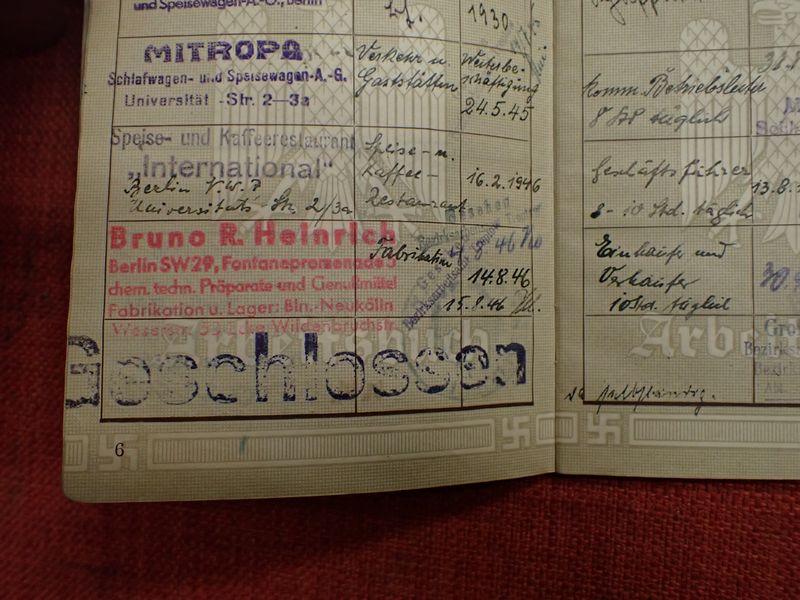 und Speisewagen-A.-G., Berlin
1930
MITROPA
Schlafwagen- und Speisewagen-A.-G.
Universität -Str. 2-3a
Verkehr u.
Gaststätten
Weiterbe-
schäftigung
24.5.45
Speise- und Kaffeerestaurant
„International"
Berlin N.W.7
Universitäts Str. 2/3a
Speise- u.
Kaffee-
Restaurant
16.2.1946
Bruno R. Heinrich
Berlin SW 29, Fontanepromenade 3
chem. techn. Präparate und Genußmittel
Fabrikation u. Lager: Bln.-Neukölln
Ecke Wildenbruchstr.
Fabrikation
14.8.46
15.8.46
Arbeitsbuch
Geschlossen
6
komm. Betriebsleiter
8 Std täglich
Geschäftsführer
8-10 Std. täglich
13.8.
Einkäufer und
Verkäufer
10 Std. täglich
30.
Arbei
Bezirks